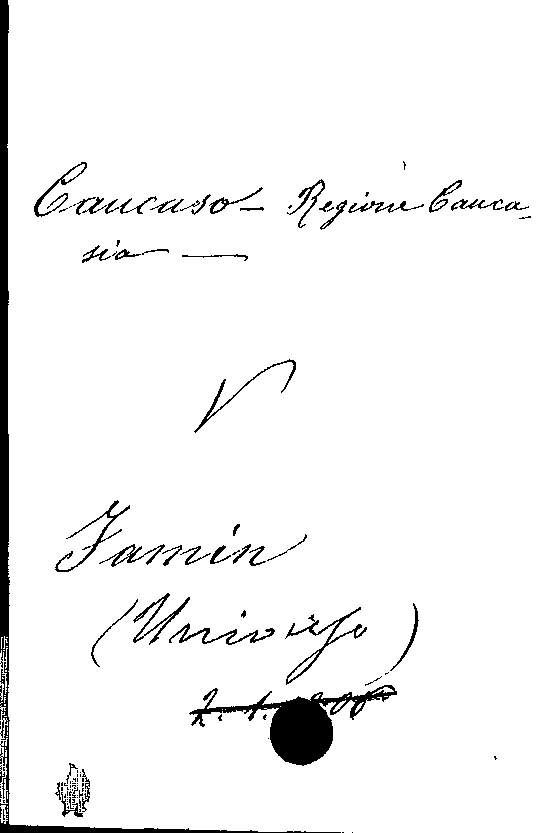 Caucaso - Regione Cauca-
sia —
V
Famin
(Universo)